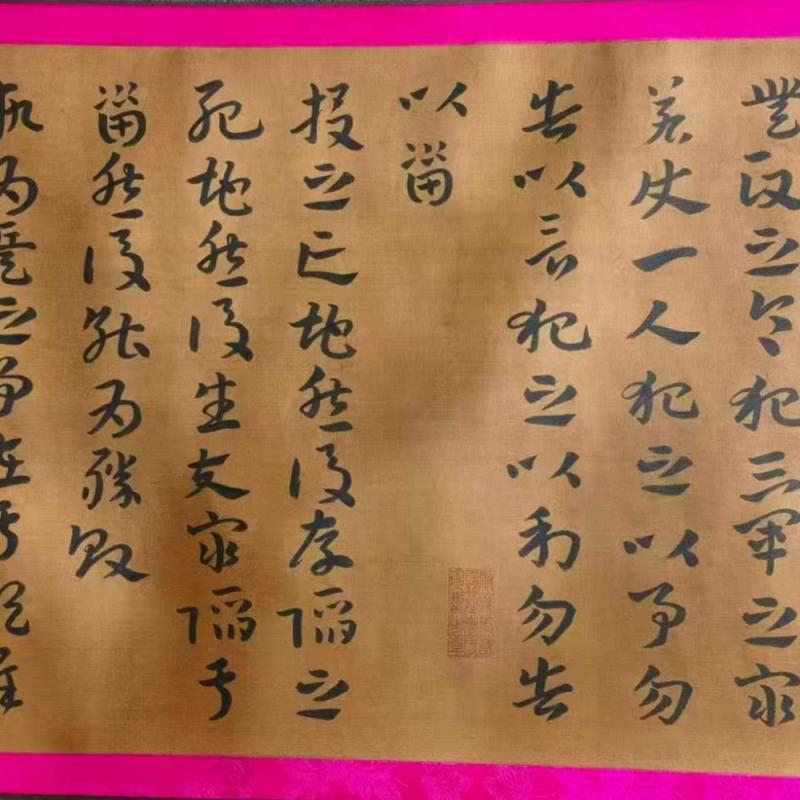 無政之令犯三軍之眾
若使一人犯之以事勿
告以言犯之以利勿告
以害
投之亡地然後存陷之
死地然後生夫眾陷于
害然後能為勝敗
故為兵之事在于順